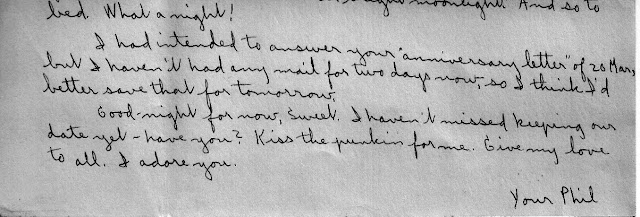 moonlight. And so to
bed. What a night!
I had intended to answer your "anniversary letter" of 20 Mar,
but I haven't had any mail for two days now, so I think I'd
better save that for tomorrow.
Good-night for now, Sweet. I haven't missed keeping our
date yet - have you? Kiss the punkin for me. Give my love
to all. I adore you.
Your Phil